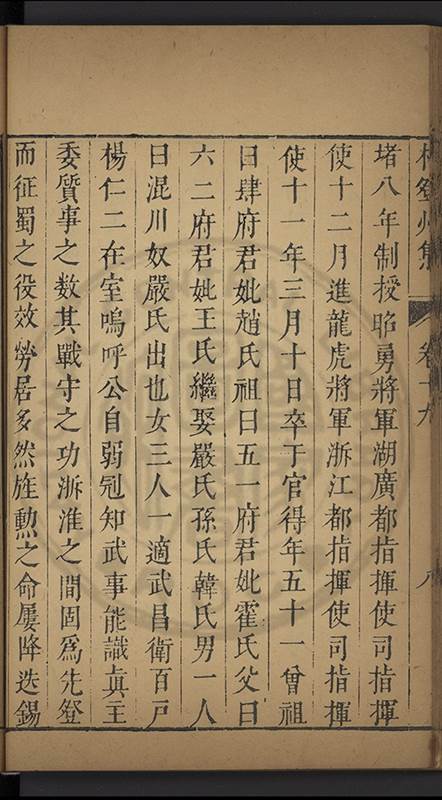 林登州集 卷十九 八
堵八年制授昭勇將軍湖廣都指揮使司指揮
使十二月進龍虎將軍浙江都指揮使司指揮
使十一年三月十日卒于官得年五十一曾祖
曰肆府君妣趙氏祖曰五一府君妣霍氏父曰
六二府君妣王氏繼娶嚴氏孫氏韓氏男一人
曰混川奴嚴氏出也女三人一適武昌衛百戸
楊仁二在室嗚呼公自弱冠知武事能識眞主
委質事之数其戰守之功浙淮之間固爲先登
而征蜀之役效勞居多然旌勲之命屢降迭錫